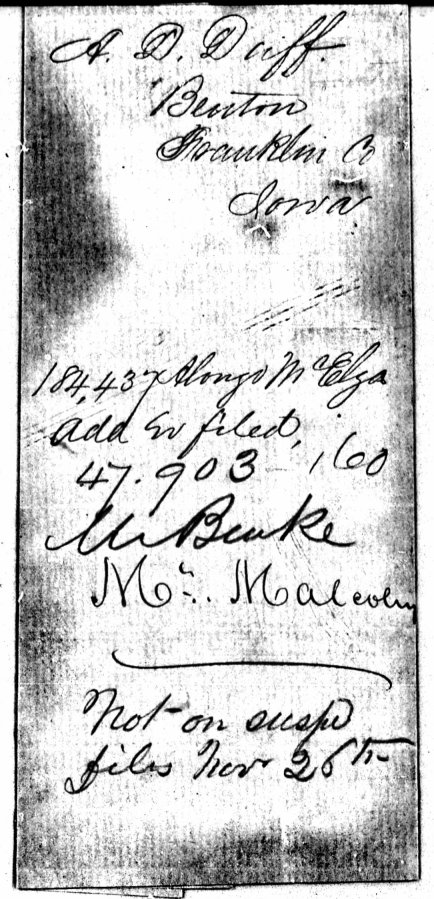 A. D. Duff.
Benton
Franklin Co
Iowa
184,437 Alonzo McElza
Add Ev filed,
47.903 - 160
Mr Burke
Mr. Malcolm
Not on suspd
files Nov 26th